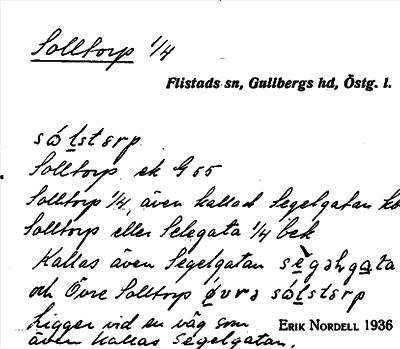 Solltorp 1/4
Flistads sn, Gullbergs hd, Östg. l.
sólstərp
Solltorp, ek G 55
Solltorp 1/4, även kallad Segelgatan kb
Solltorp eller Selegata 1/4 bek
Kallas även Segelgatan
och Övre Solltorp övrə sólstərp
Ligger vid en väg som
även kallas Segelgatan.
ERIK NORDELL 1936